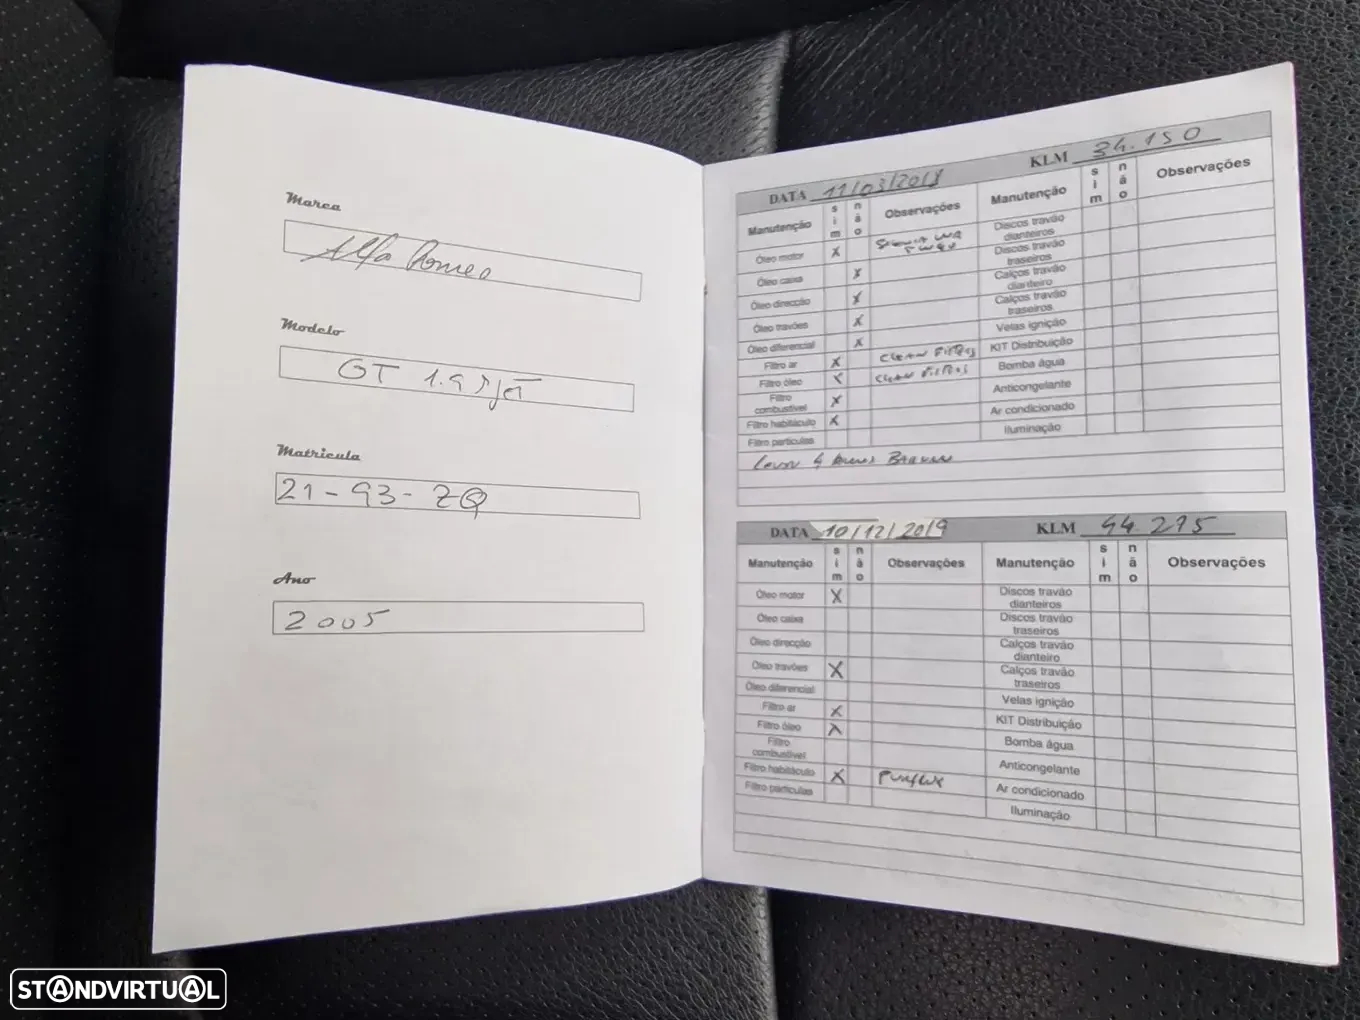 Marca
Alfa Romeo
Modelo
GT 1.9 Jtd
Matricula
21-93-ZQ
Ano
2005
DATA 11/03/2018 KLM 34.150
Manutenção sim não Observações Manutenção sim não Observações
Óleo motor X Discos travão dianteiros
Óleo caixa X Discos travão traseiros
Óleo direcção X Calços travão dianteiro
Óleo travões X Calços travão traseiros
Óleo diferencial X Velas ignição
Filtro ar X CLEAN FILTERS KIT Distribuição
Filtro óleo X CLEAN FILTERS Bomba água
Filtro combustível X Anticongelante
Filtro habitáculo X Ar condicionado
Filtro partículas Iluminação
DATA 10/12/2019 KLM 44.275
Manutenção sim não Observações Manutenção sim não Observações
Óleo motor X Discos travão dianteiros
Óleo caixa Discos travão traseiros
Óleo direcção Calços travão dianteiro
Óleo travões X Calços travão traseiros
Óleo diferencial Velas ignição
Filtro ar X KIT Distribuição
Filtro óleo X Bomba água
Filtro combustível Anticongelante
Filtro habitáculo X Purflux Ar condicionado
Filtro partículas Iluminação
STANDVIRTUAL